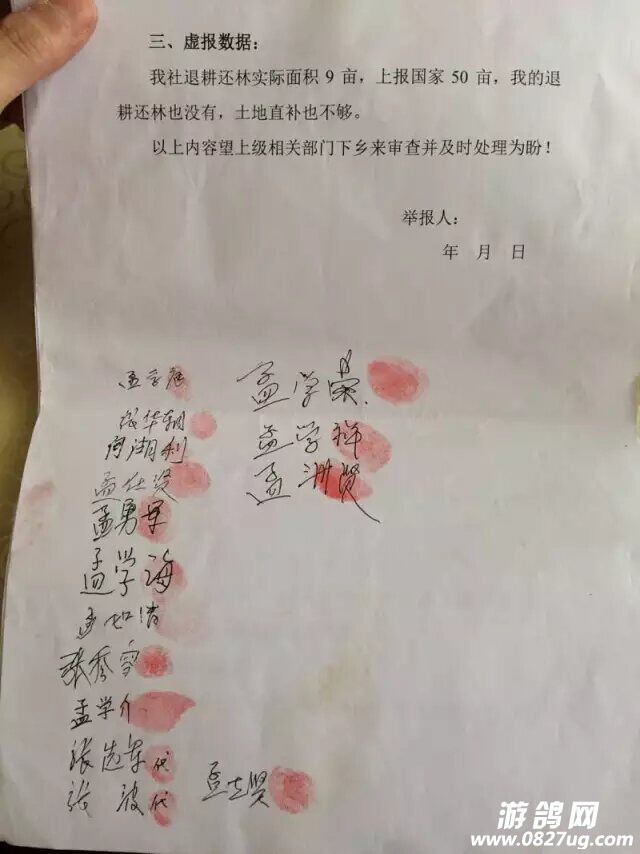 三、虚报数据：
我社退耕还林实际面积 9 亩，上报国家 50 亩，我的退
耕还林也没有，土地直补也不够。
以上内容望上级相关部门下乡来审查并及时处理为盼！
举报人：
年 月 日
孟学荣
孟学祥
孟洲贤
孟仕贤
孟勇军
孟学海
张秀容
孟学
张选军代
张 波代
游鸽网
www.0827ug.com